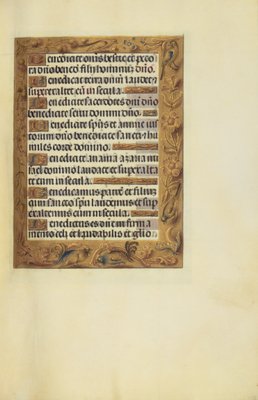 Benedicite om̃s bestie et peco
ra dño benedicite filij hominum dño.
Benedicat terra dñm laudet et
superexaltet eũ in secula.
Benedicite sacerdotes dñi dño
benedicite serui domini dño.
Benedicite spũs et anime ius
torum dño benedicite sancti et hu
miles corde domino.
Benedicite anania azaria mi
sael domino laudate et superexalta
te eum in secula.
Benedicamus patrẽ et filium
cum sancto spũ laudemus et sup
exaltemus eum in secula.
Benedictus es dñe in firma
mento celi et laudabilis et glio